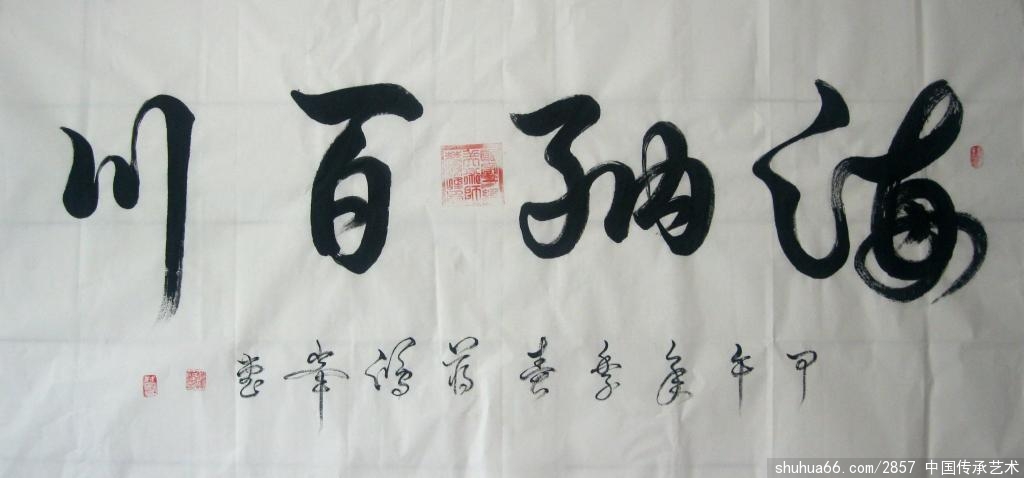 海纳百川
甲午年季春蒋鸿峯书
shuhua66.com/2857 中国传承艺术